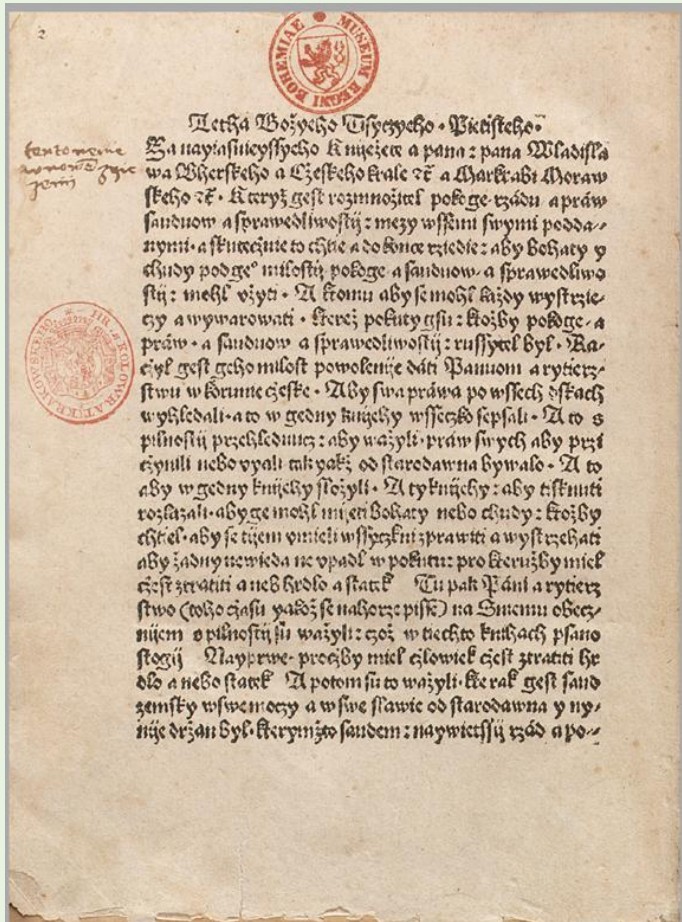 MUSEUM REGNI BOHEMIAE
Letha Božycho Tisyczycho · Pietisteho·
Za nayiasnieyssycho Knijezete a pana : pana Wladisla
wa Vherskeho a Czeskeho krale ꝛc̄ a Markrabi Moraw
skeho ꝛc̄ · Kteryž gest rozmnožitel pokoge· rzádu a práw
sanduow a sprawedliwostij : mezy wssemi swymi podda-
nymi· a skutečnie to chtie a do konce rziedie : aby bohaty y
chudy pod geº milostij pokoge a sanduow· a sprawedliwo
stij : mohl vžyti · A ktomu aby se mohl každy wystrzie-
czy a wywarowati · kterež pokuty gsu : ktožby pokoge· a
práw · a sanduow a sprawedliwostij : russytel byl · Ra-
czyl gest geho milost powolenije dáti Pannom a rytierz-
stwu w korunie czeske · Aby swa práwa po wssech dskach
wyhledali· a to w gedny knijehy wsseczko sepsali · A to s
pilnostij przehlednucz : aby wažyli· práw swych aby przi
czynili nebo vyali tak yakž od starodawna bywalo · A to
aby w gedny knijehy složyli · A ty knijehy : aby tisknuti
rozkazali· aby ge mohl mijeti bohaty nebo chudy : ktožby
chtiel· aby se tijem vmieli wssyczkni zprawiti a wystrzehati
aby žadny newieda ne vpadl w pokutu : pro kteružby miel
czest ztratiti a neb hrdlo a statek Tu pak Páni a rytierz
stwo (toho czasu yakož se nahorze pisse) na Sniemu obecz-
nijem s pilnostij su wažyli : czož w tiechto knihach psano
stogij Nayprwe· proczby miel czlowiek czest ztratiti hr
dlo a nebo statek A potom su to wažyli· kterak gest saud
zemsky w swe moczy a w swe slawie od starodawna y ny-
nije držan byl· kterymžto saudem : naywietssij rzád a po-